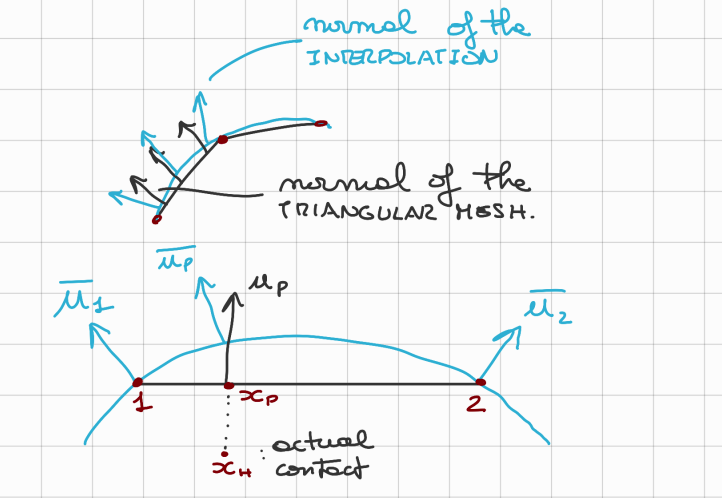 normal of the
INTERPOLATION
normal of the
TRIANGULAR MESH.
n̅P
nP
n̅1
n̅2
1
xP
2
xH : actual
contact